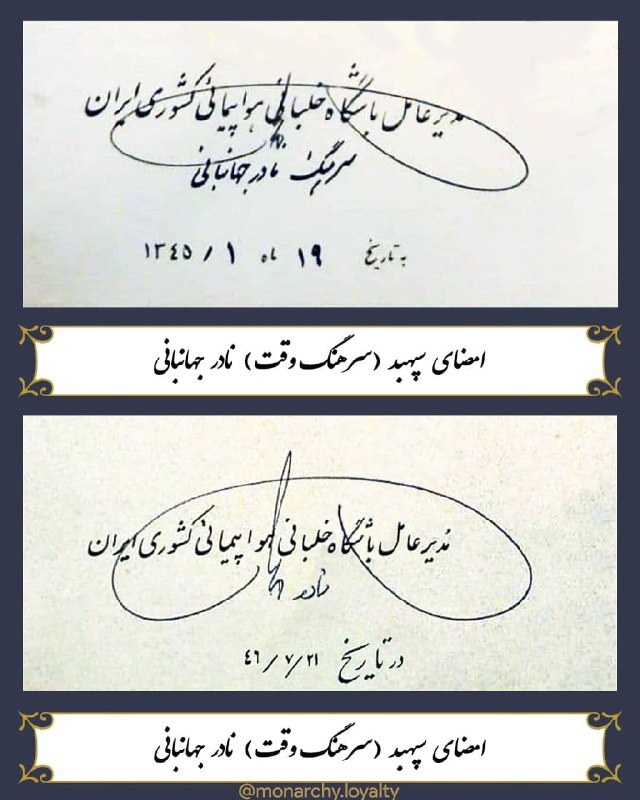 مدیر عامل باشگاه خلبانی هواپیمائی کشوری ایران
سرهنگ نادر جهانبانی
به تاریخ ۱۹ ماه ۱ / ۱۳٤٥
امضای سپهبد (سرهنگ وقت) نادر جهانبانی
مدیر عامل باشگاه خلبانی هواپیمائی کشوری ایران
نادر
در تاریخ ۲۱ / ۷ / ٤٦
امضای سپهبد (سرهنگ وقت) نادر جهانبانی
@monarchy.loyalty